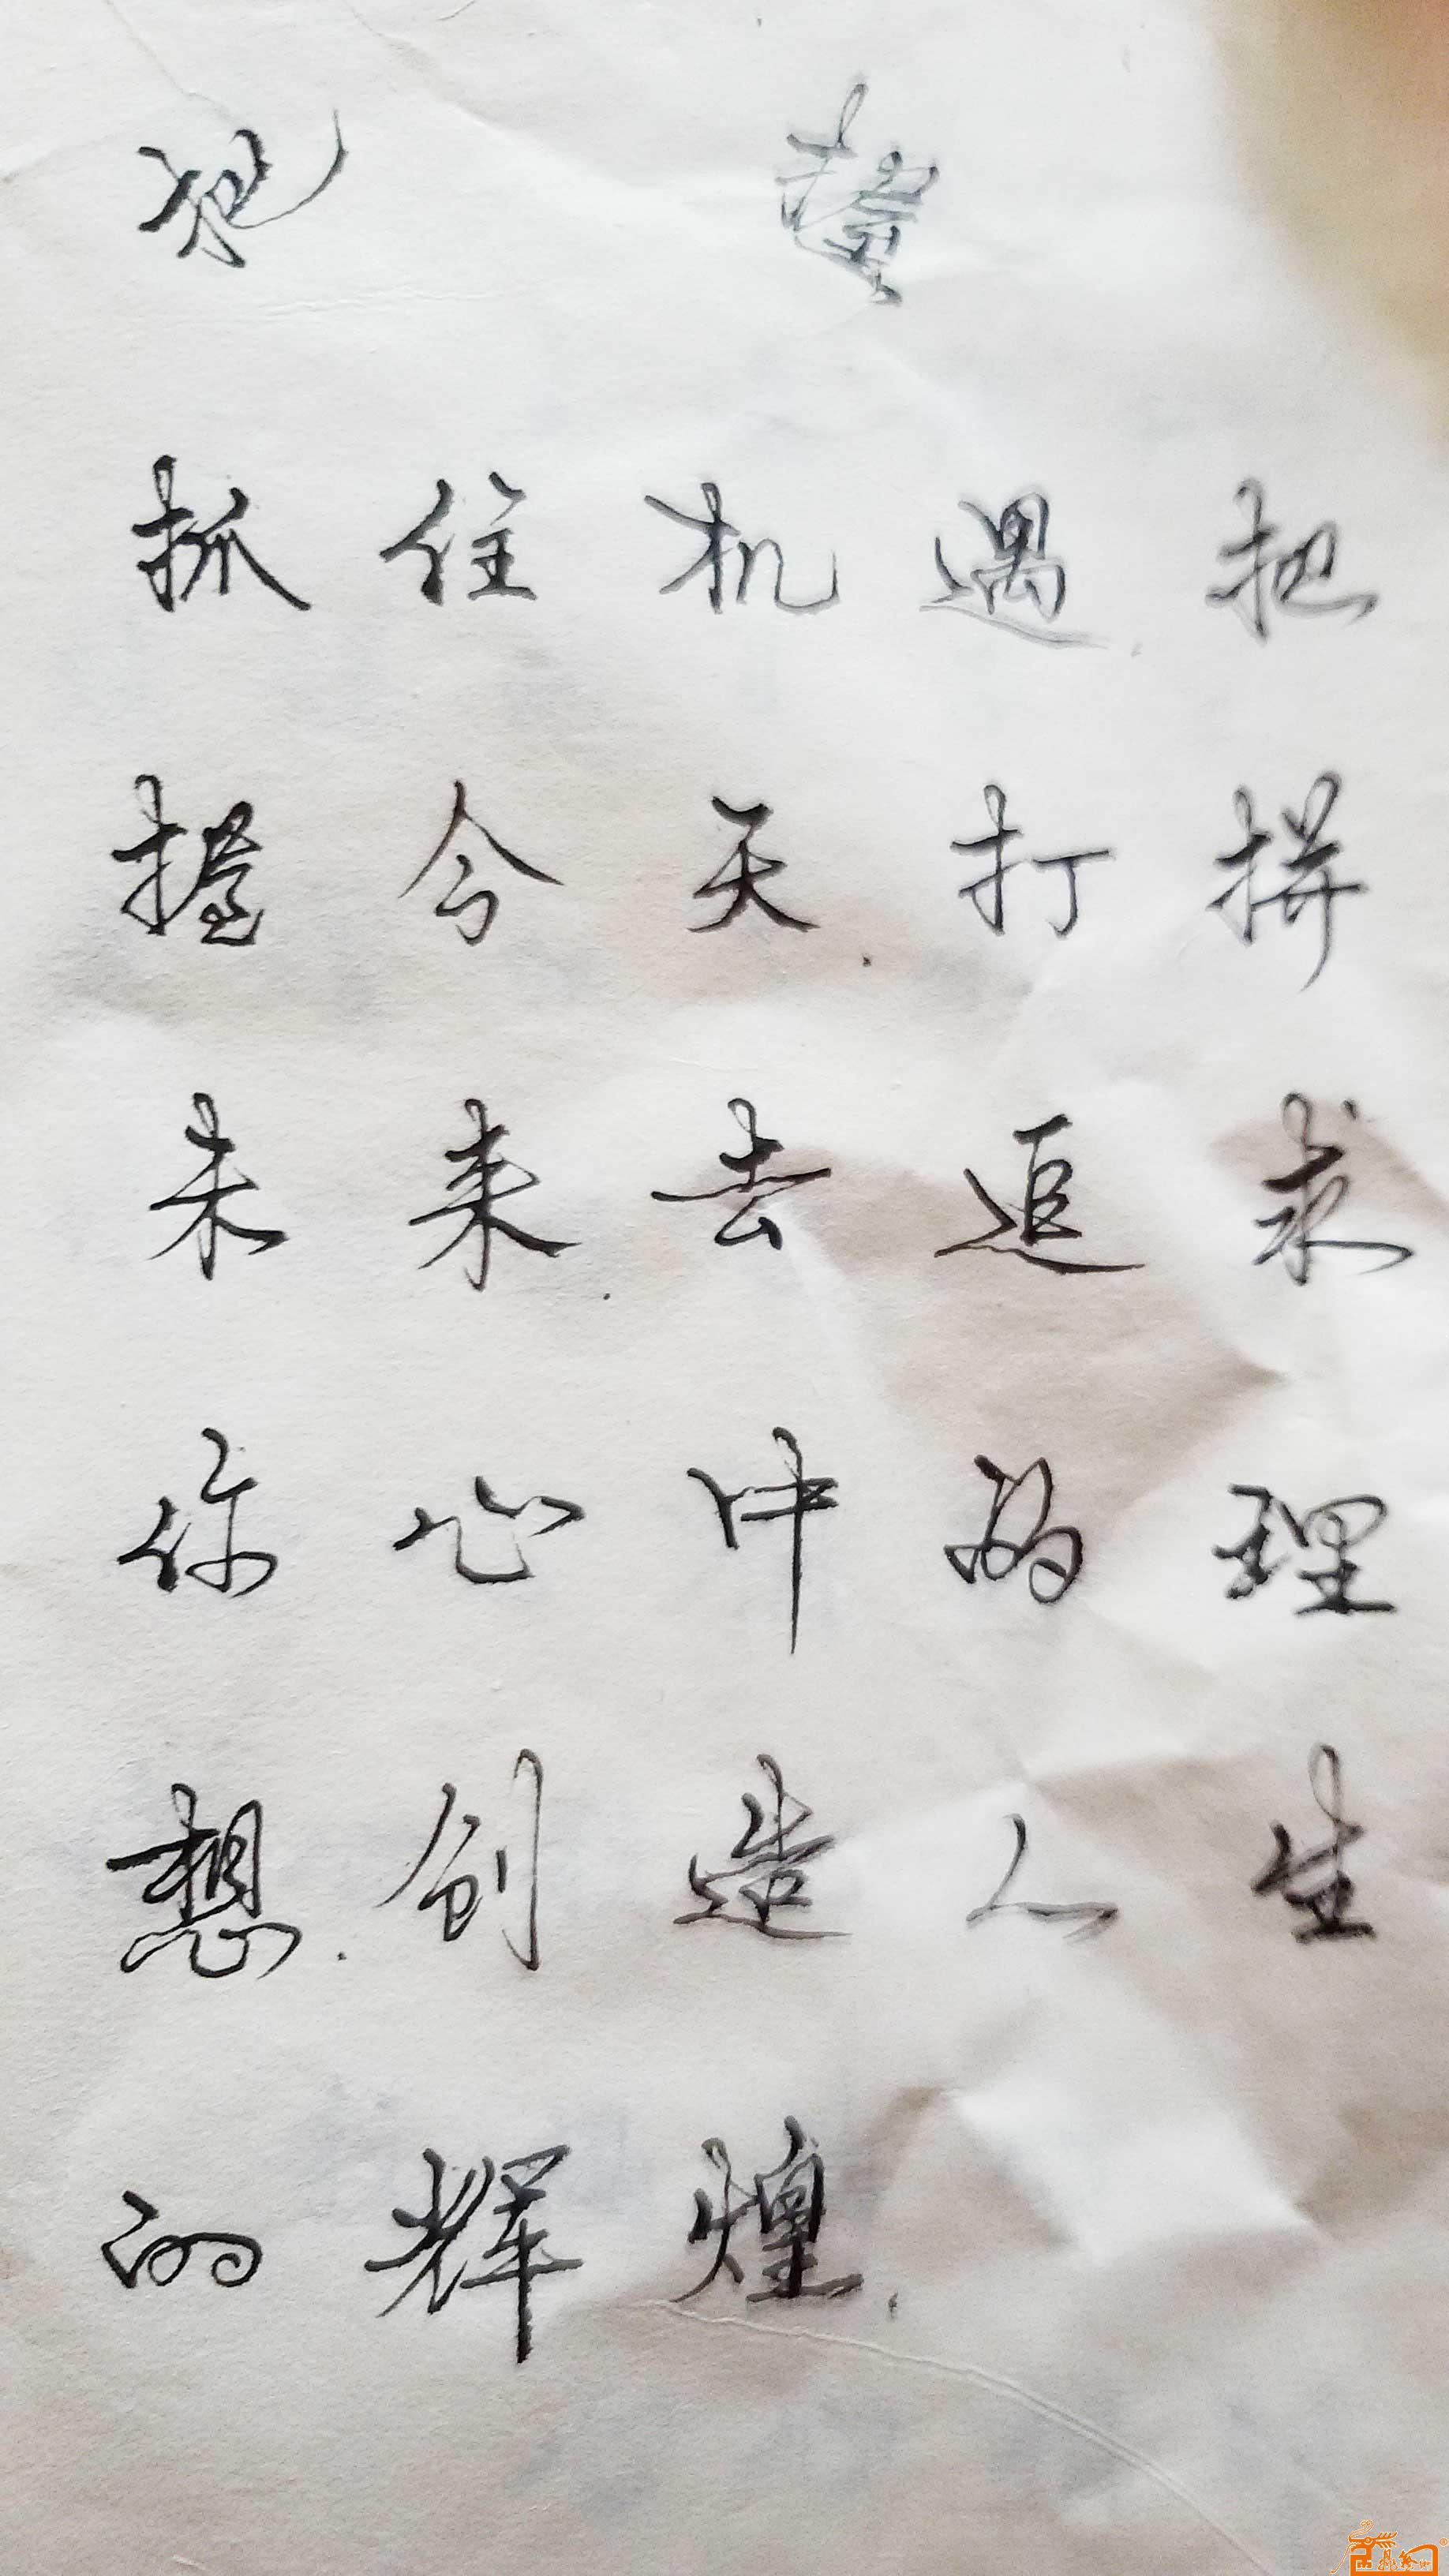 把握
抓住机遇.把
握今天.打拼
未来.去追求
你心中的理
想.创造人生
的辉煌.